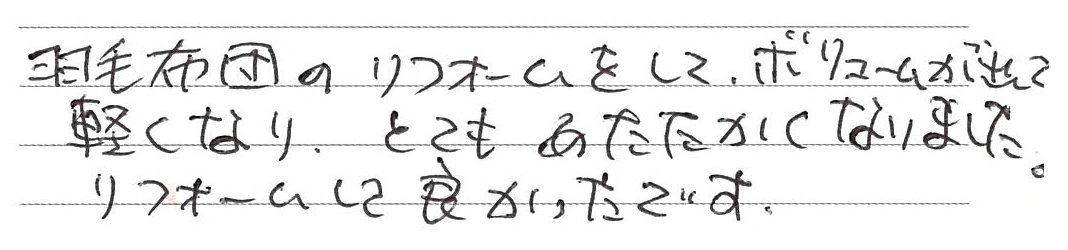 羽毛布団のリフォームをして、ボリュームが出て
軽くなり、とてもあたたかくなりました。
リフォームして良かったです。